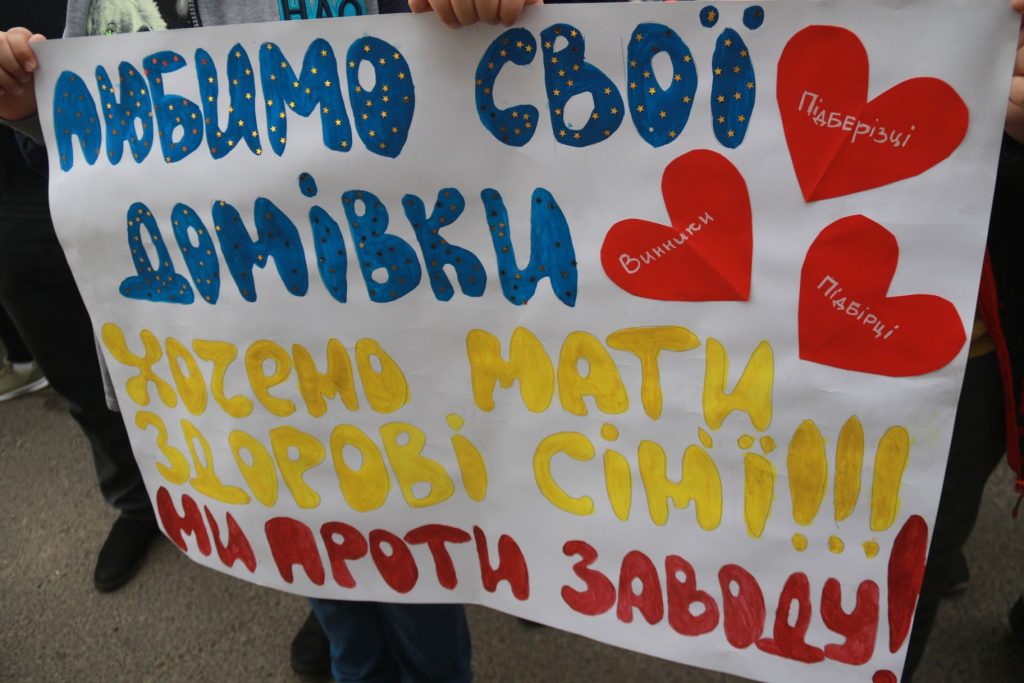 ЛЮБИМО СВОЇ
ДОМІВКИ
Підберізці
Винники
Підбірці
ХОЧЕМО МАТИ
ЗДОРОВІ СІМ'Ї!!!
МИ ПРОТИ ЗАВОДУ!